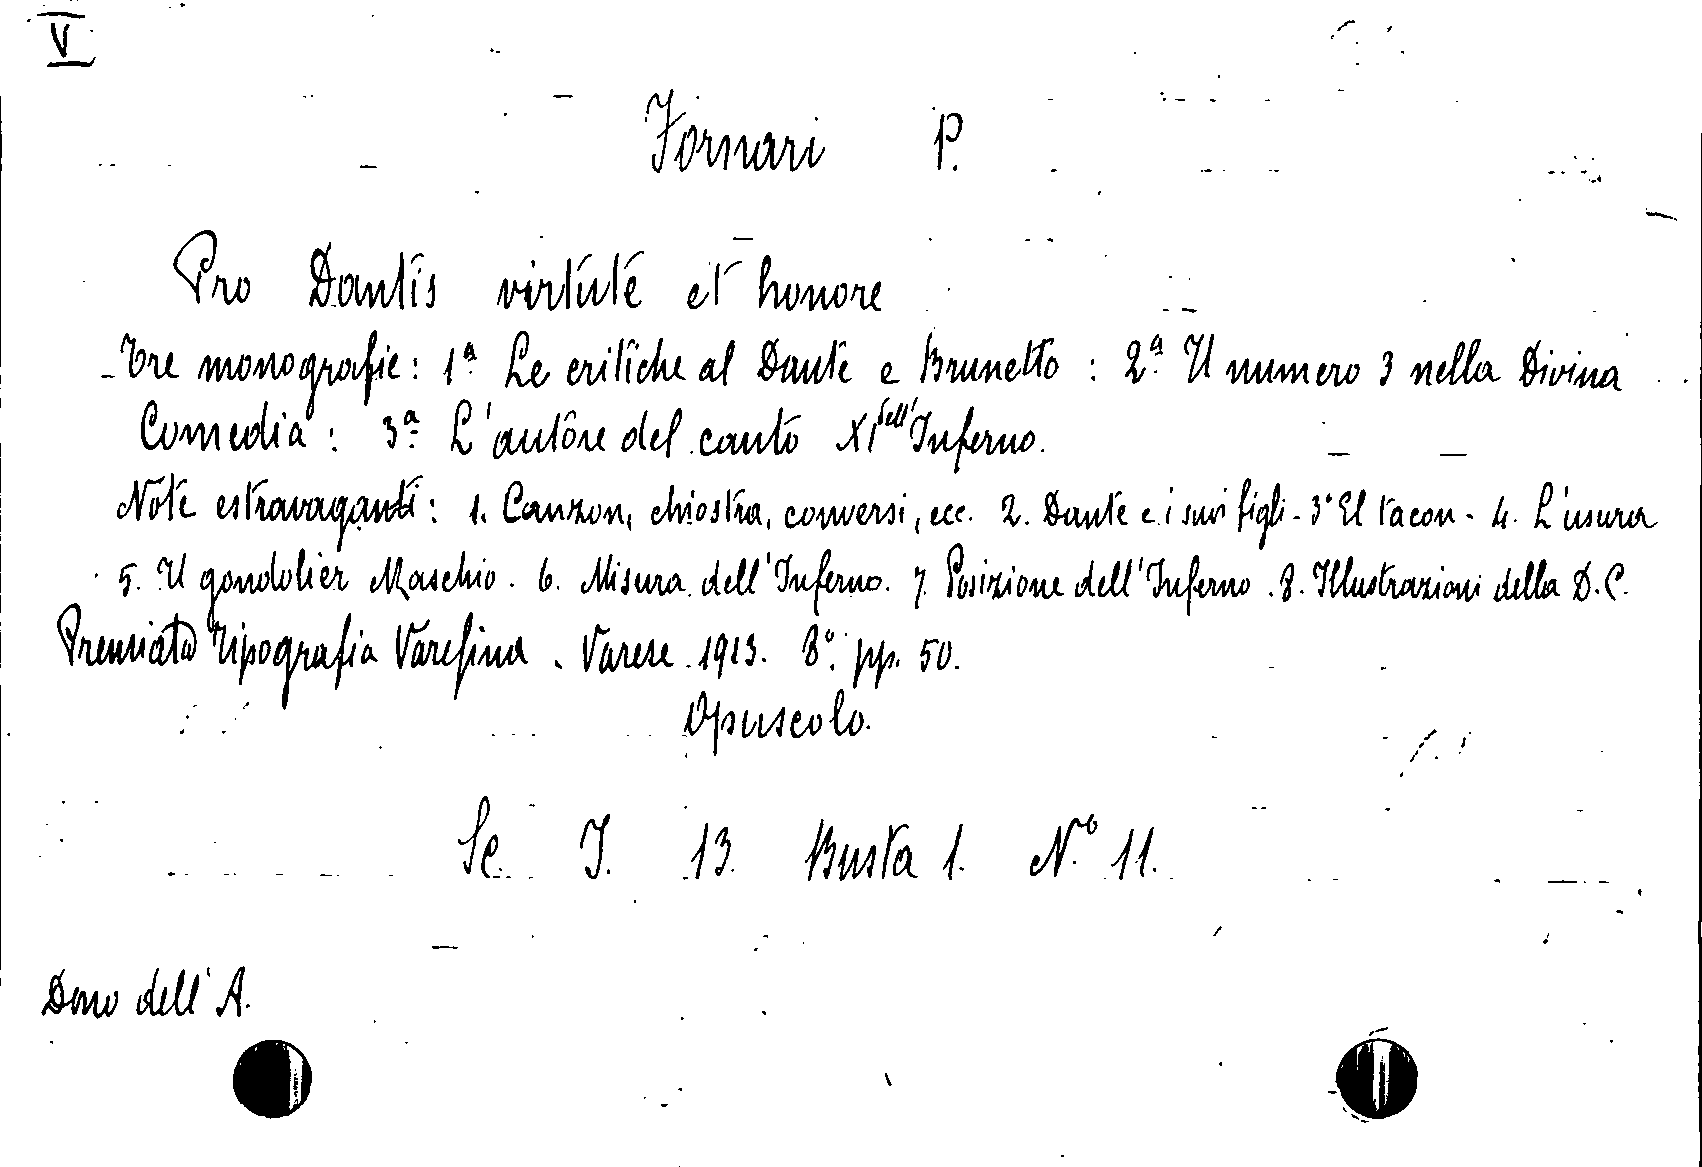 V
Fornari P.
Pro Dantis virtute et honore
Tre monografie: 1ª Le critiche al Dante e Brunetto: 2ª Il numero 3 nella Divina
Comedia: 3ª L'autore del canto XI dell'Inferno.
Note estravaganti: 1. Canzon, chiostra, conversi, ecc. 2. Dante e i suoi figli - 3° El tacon - 4. L'usura
5. Il gondolier Maschio. 6. Misura dell'Inferno. 7. Posizione dell'Inferno. 8. Illustrazioni della D.C.
Premiata Tipografia Varesina. Varese. 1913. 8° pp. 50.
Opuscolo.
Sc. I. 13. Busta 1. N.º 11.
Dono dell'A.